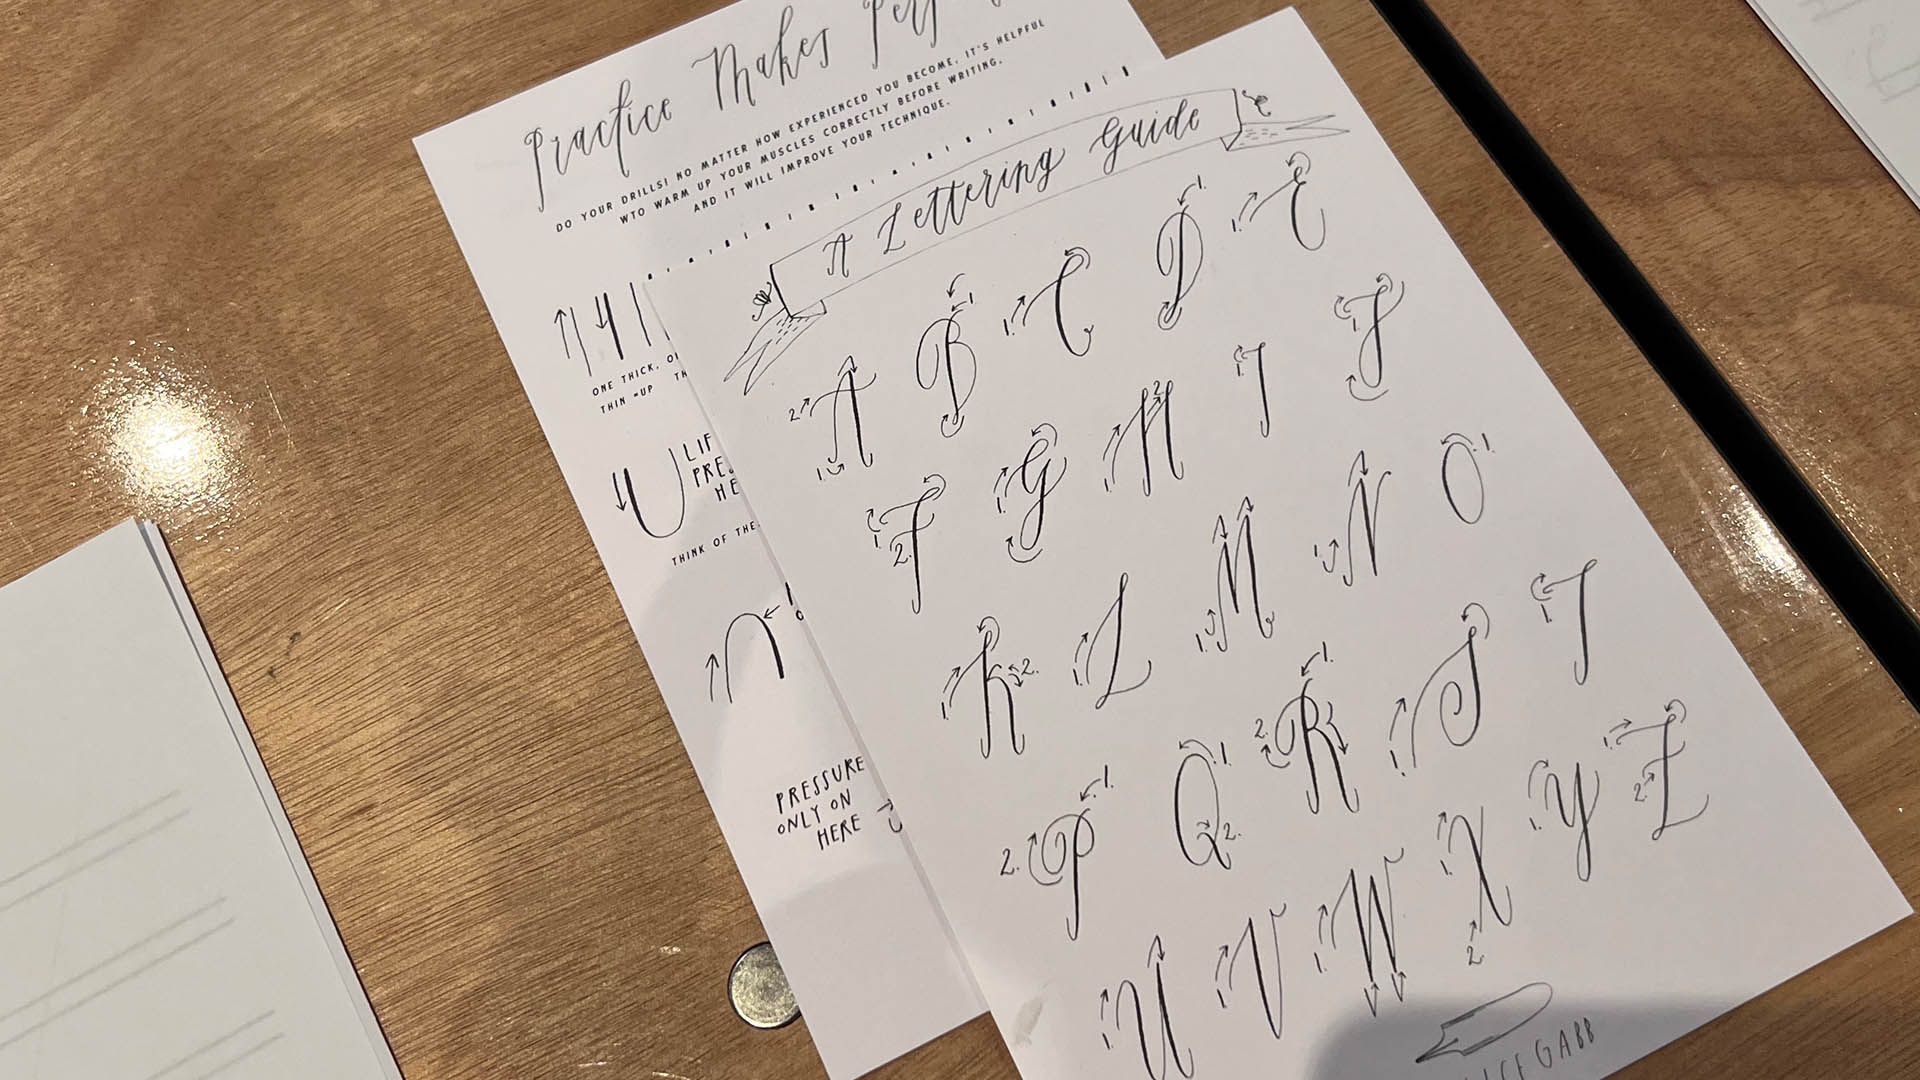 Practice Makes
DO YOUR DRILLS! NO MATTER HOW EXPERIENCED YOU BECOME, IT'S HELPFUL
WTO WARM UP YOUR MUSCLES CORRECTLY BEFORE WRITING,
AND IT WILL IMPROVE YOUR TECHNIQUE.
ONE THICK,
THIN =UP
THINK OF THE
PRESSURE
ONLY ON
HERE
A Lettering Guide
A B C D E
F G H I J
K L M N O
P Q R S T
U V W X Y Z
GABB